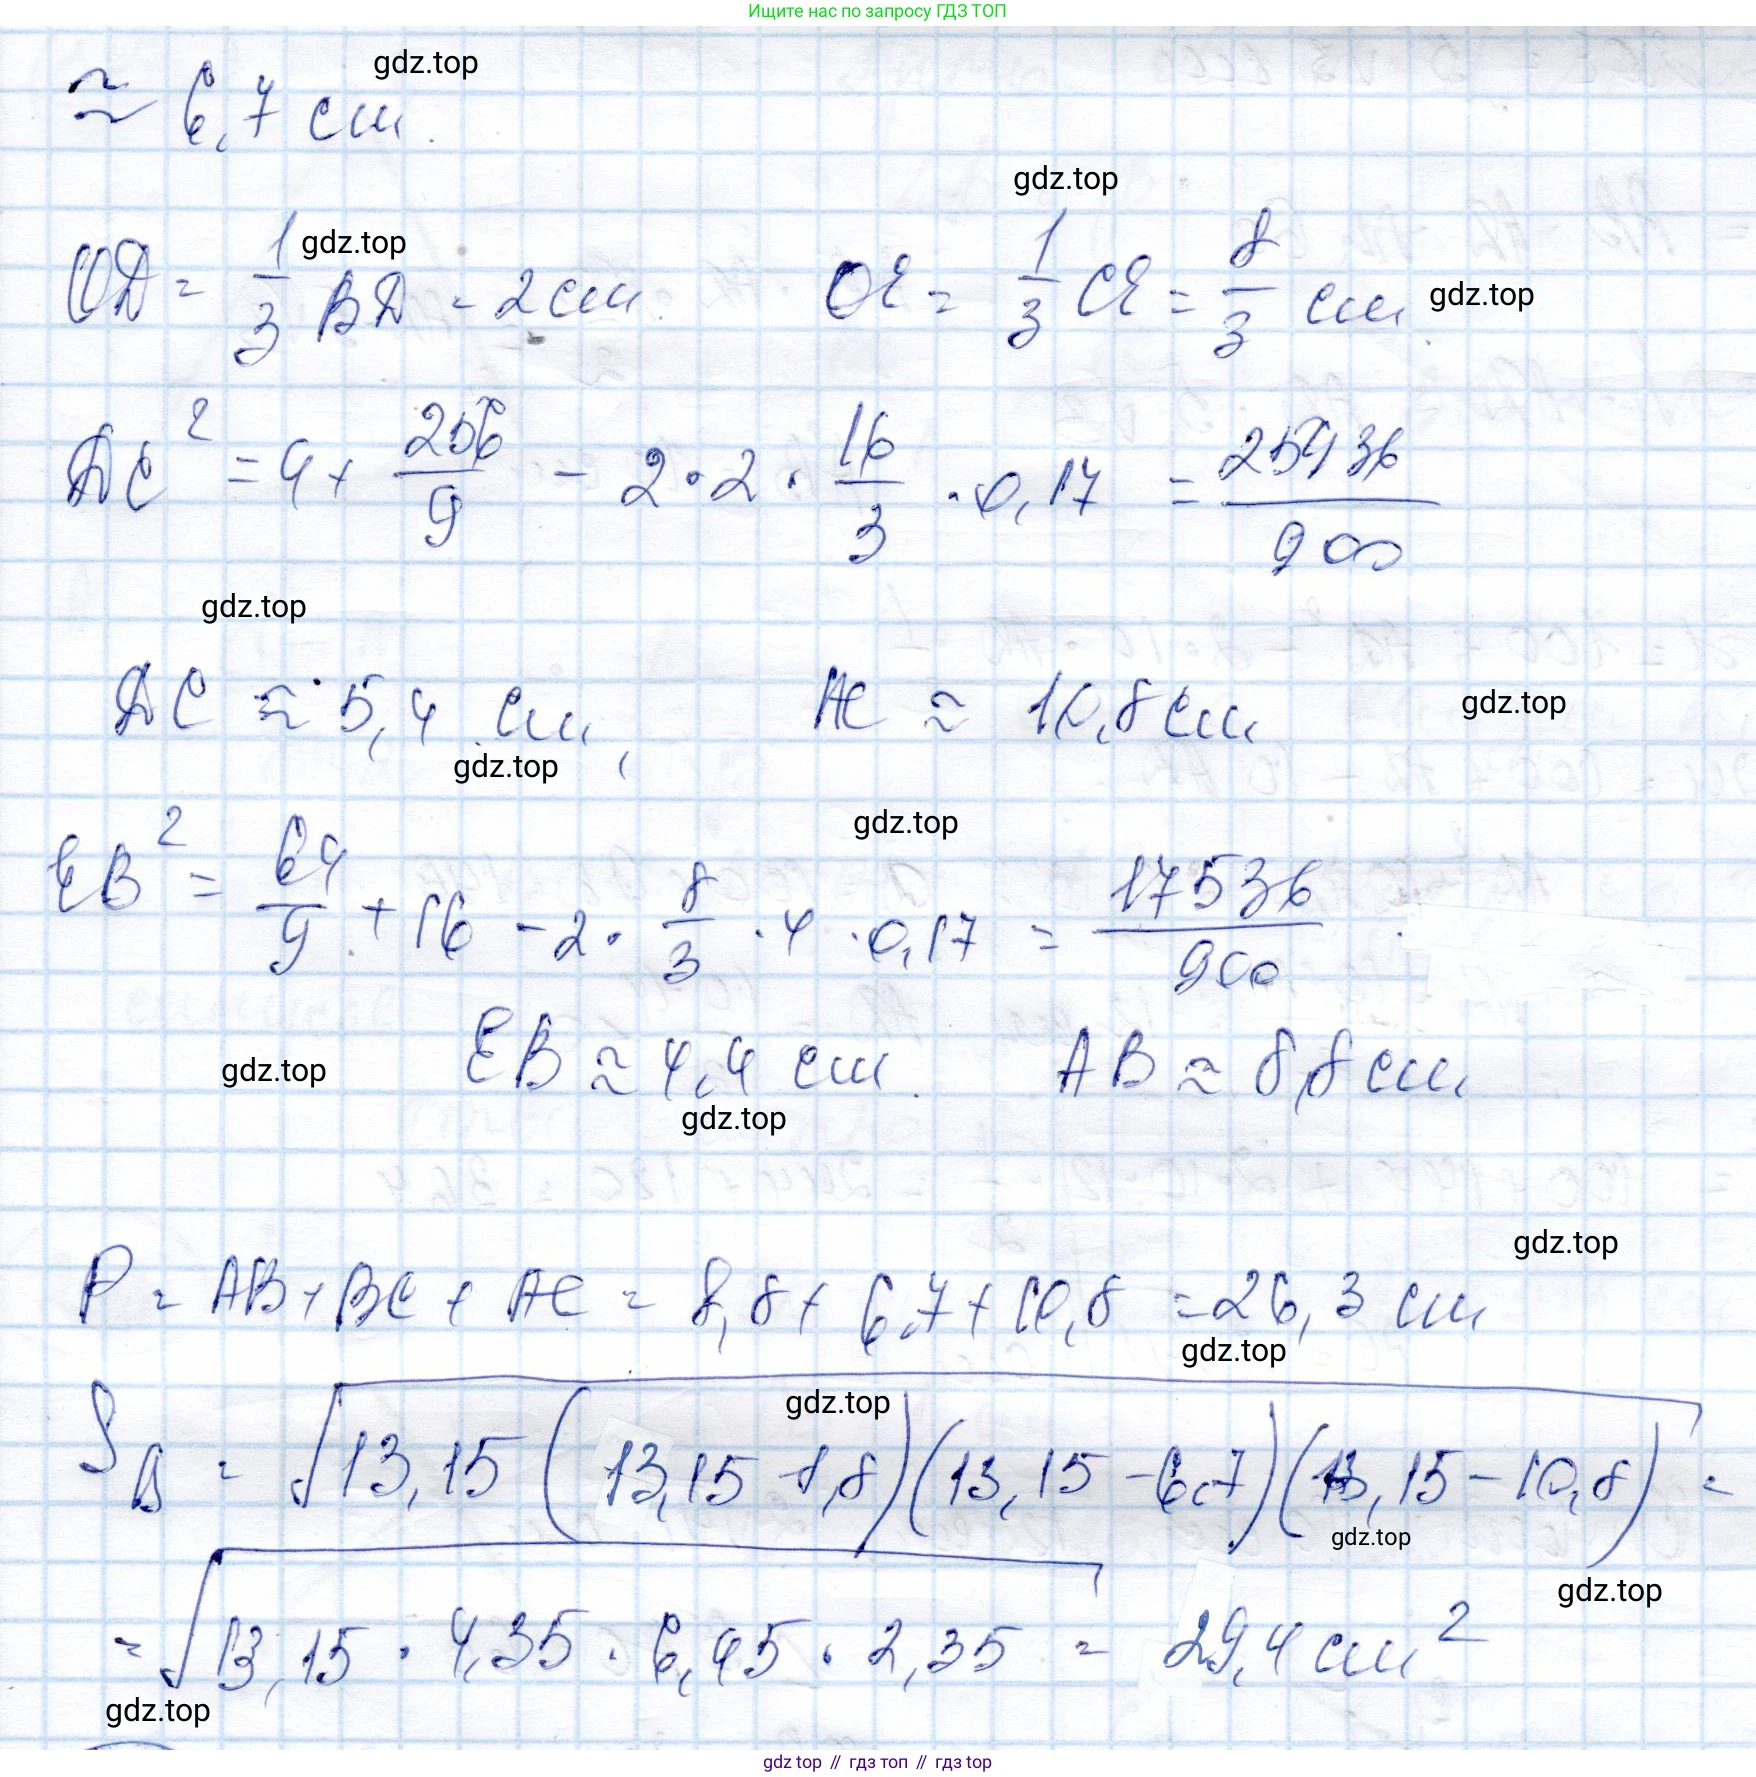 Ищите нас по запросу ГДЗ ТОП
gdz.top
≈ 6,7 см.
gdz.top
gdz.top
OD = 1/3 BD = 2 см. OE = 1/3 CE = 8/3 см.
gdz.top
DC² = 4 + 256/9 - 2 · 2 · 16/3 · 0,17 = 25936/900
gdz.top
DC ≈ 5,4 см, AC ≈ 10,8 см
gdz.top
gdz.top
gdz.top
EB² = 64/9 + 16 - 2 · 8/3 · 4 · 0,17 = 17536/900
EB ≈ 4,4 см. AB ≈ 8,8 см
gdz.top
gdz.top
gdz.top
P = AB + BC + AC = 8,8 + 6,7 + 10,8 = 26,3 см
gdz.top
gdz.top
S_Δ = √(13,15 (13,15 - 8,8)(13,15 - 6,7)(13,15 - 10,8)) =
gdz.top
gdz.top
= √(13,15 · 4,35 · 6,45 · 2,35) = 29,4 см²
gdz.top
gdz top // гдз топ // гдз top